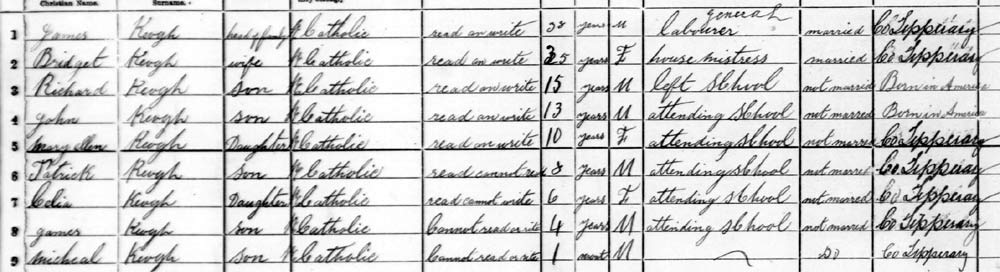 Christian Name. Surname.
1 James Keogh head of family R Catholic read an write 38 years M general labourer married Co Tipperary
2 Bridget Keogh wife R Catholic read an write 35 years F house mistress married Co Tipperary
3 Richard Keogh son R Catholic read an write 15 years M left school not married Born in America
4 John Keogh son R Catholic read an write 13 years M attending school not married Born in America
5 mary ellen Keogh Daughter R Catholic read an write 10 years F attending school not married Co Tipperary
6 Patrick Keogh son R Catholic read cannot red 8 years M attending school not marred Co Tipperary
7 Celia Keogh Daughter R Catholic read cannot write 6 years F attending school not marred Co Tipperary
8 James Keogh son R Catholic Cannot read or rite 4 years M attending school not marred Co Tipperary
9 micheal Keogh son R Catholic Cannot read or rite 1 M Do Co Tipperary